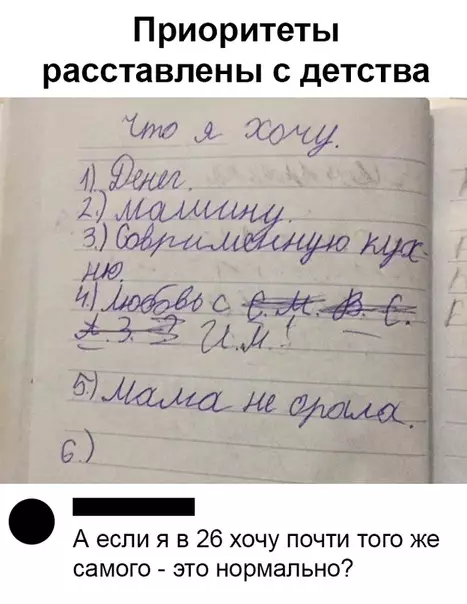 Приоритеты
расставлены с детства
Что я хочу.
1) Денег.
2.) машину.
3.) Современную кух-
ню.
4) Любовь с С. М. В. С.
А. З. И.М.!
5.) Мама не орала.
6.)
А если я в 26 хочу почти того же
самого - это нормально?